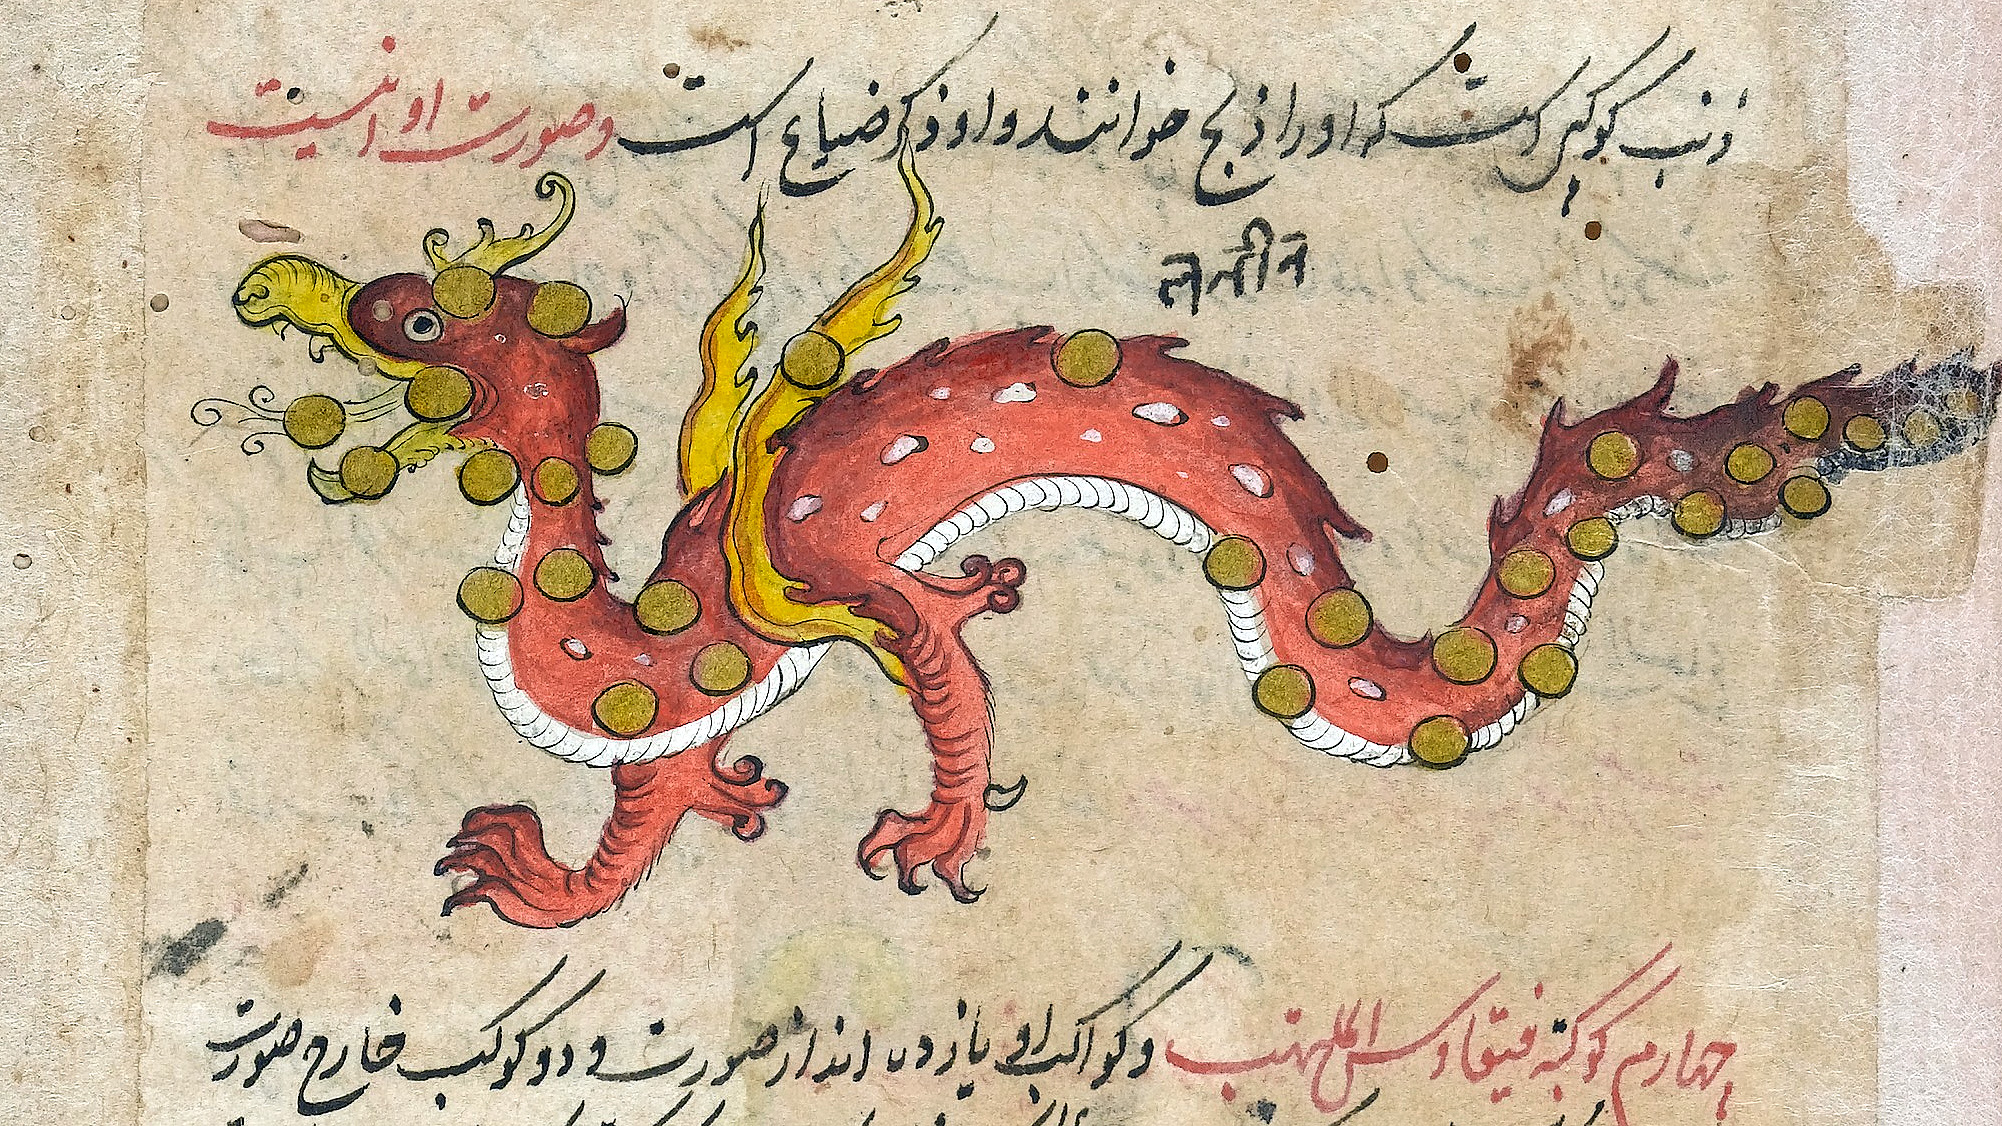 ذنب کوکبی است که او را ذیخ خوانند و او ذکر ضباع است و صورت او اینست
तनीन
چهارم کوکبة قیقاوس الملهب و کواکب او یازده اند از صورت و دو کوکب خارج صورت